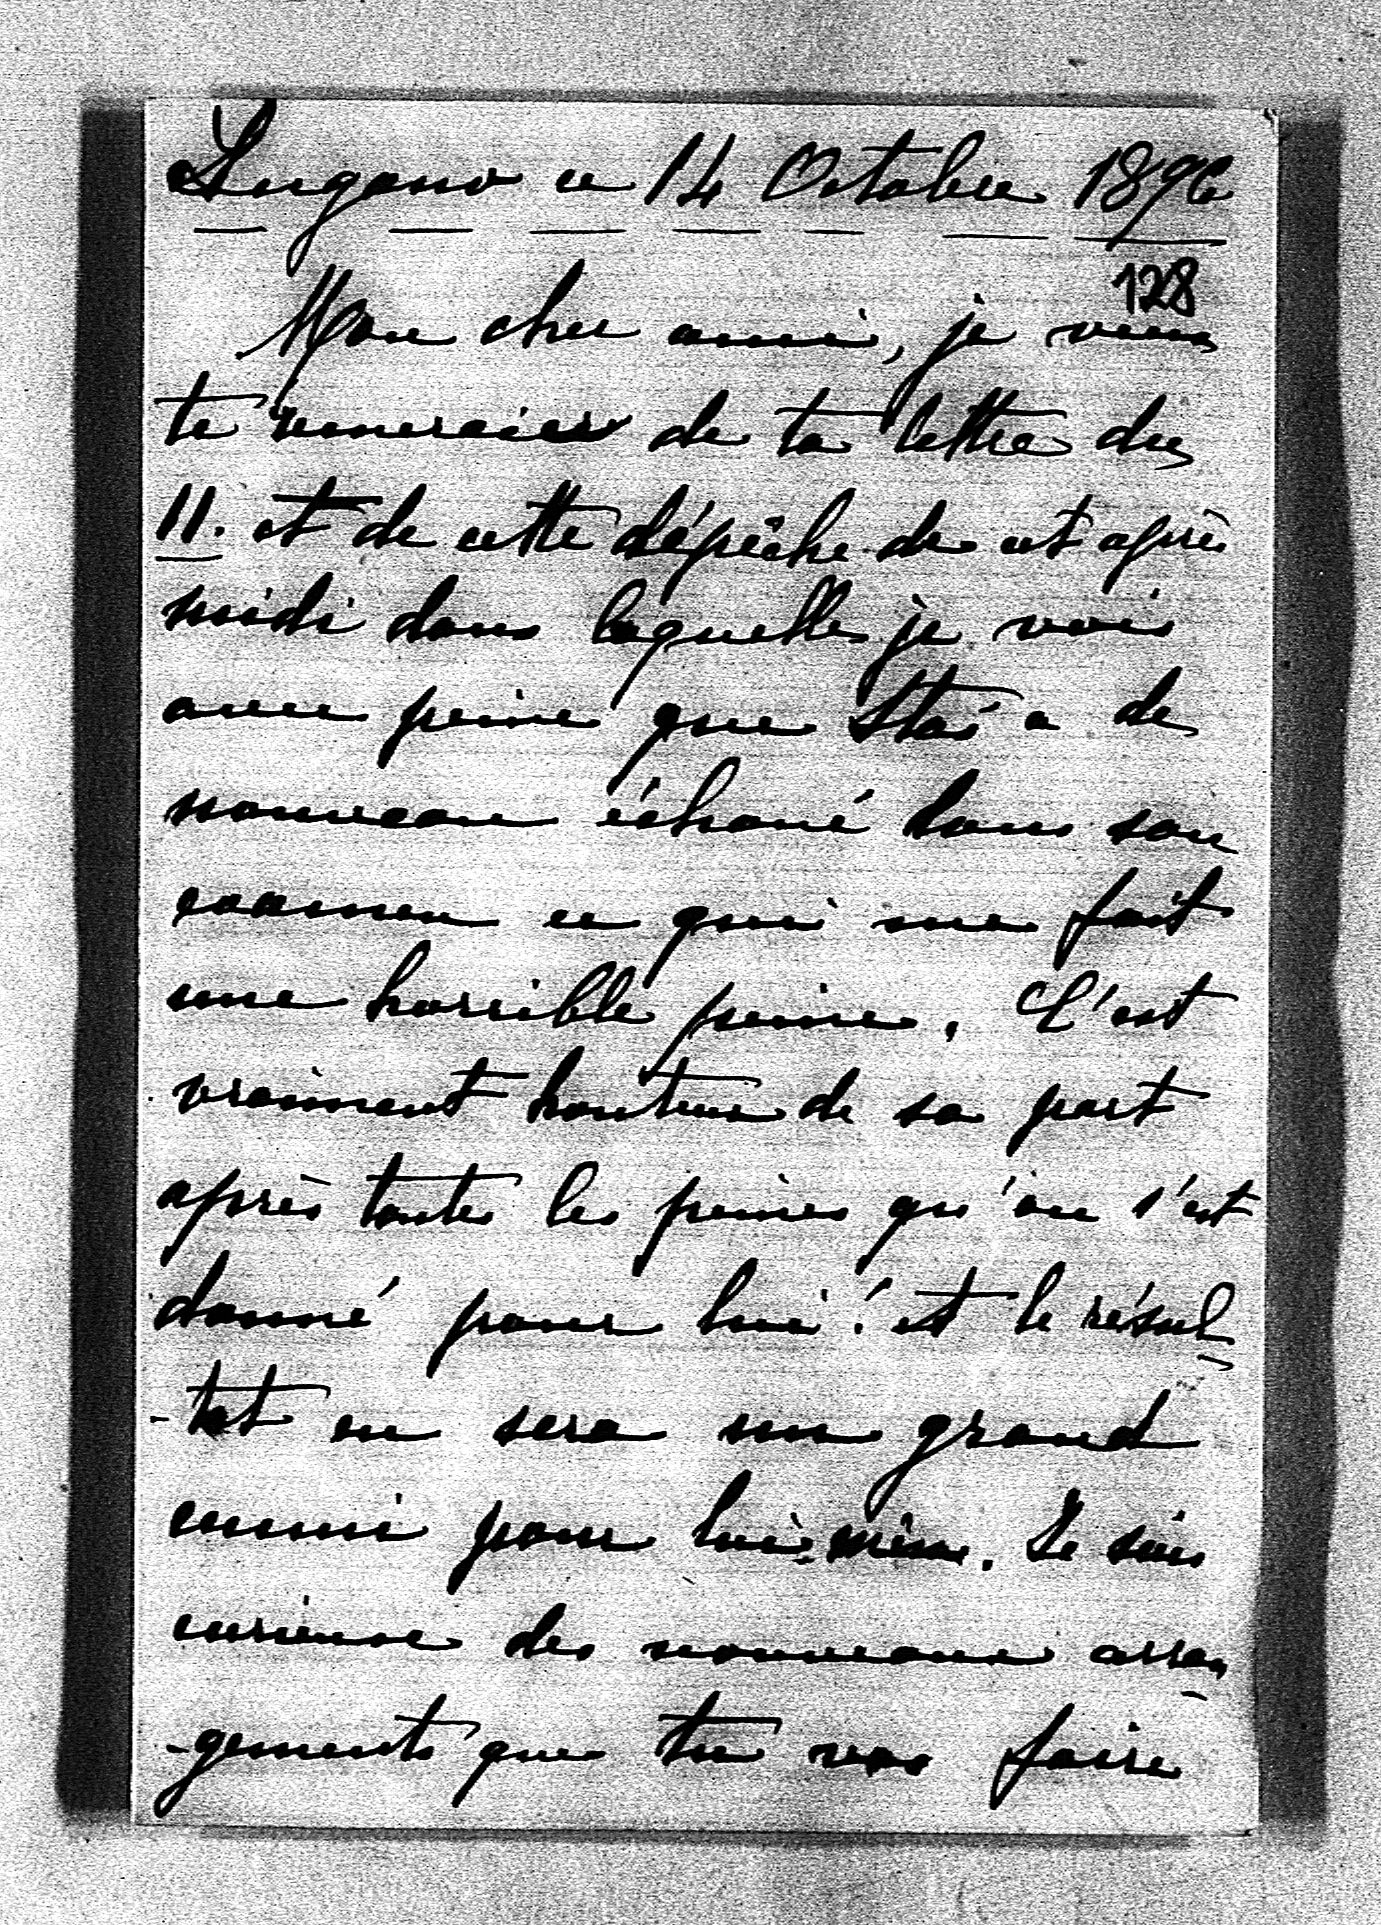 Lugano ce 14 Octobre 1896
128
Mon cher ami, je viens
te remercier de ta lettre du
11. et de cette dépêche de cet après
midi dans laquelle je vois
avec peine que Staé a de
nouveau échoué dans son
examen ce qui me fait
une horrible peine. C'est
vraiment honteux de sa part
après toutes les peines qu'on s'est
donné pour lui! et le résul
-tat en sera un grand
ennui pour lui-même. Je suis
curieuse des nouveaux arran
-gements que tu vas faire